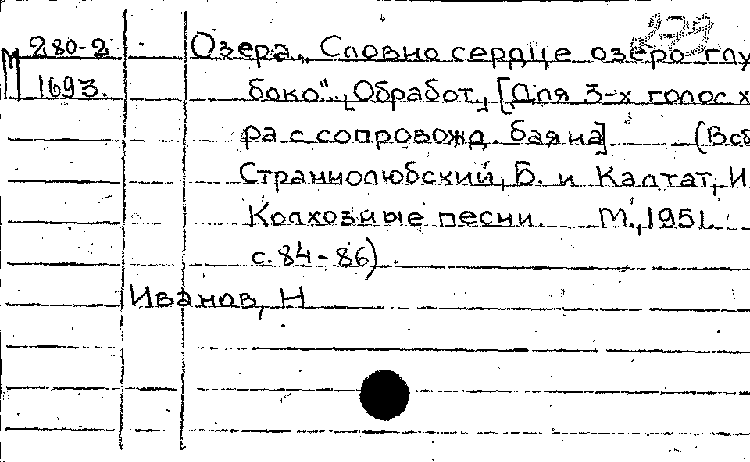 279
М 280-2 Озера. „Словно сердце озеро глу
1693. боко". Обработ. [Для 3-х голос х
ра с сопровожд. баяна] (Всб
Страннолюбский, Б. и Калтат, И
Колхозные песни. М., 1951.
с. 84-86).
Иванов, Н